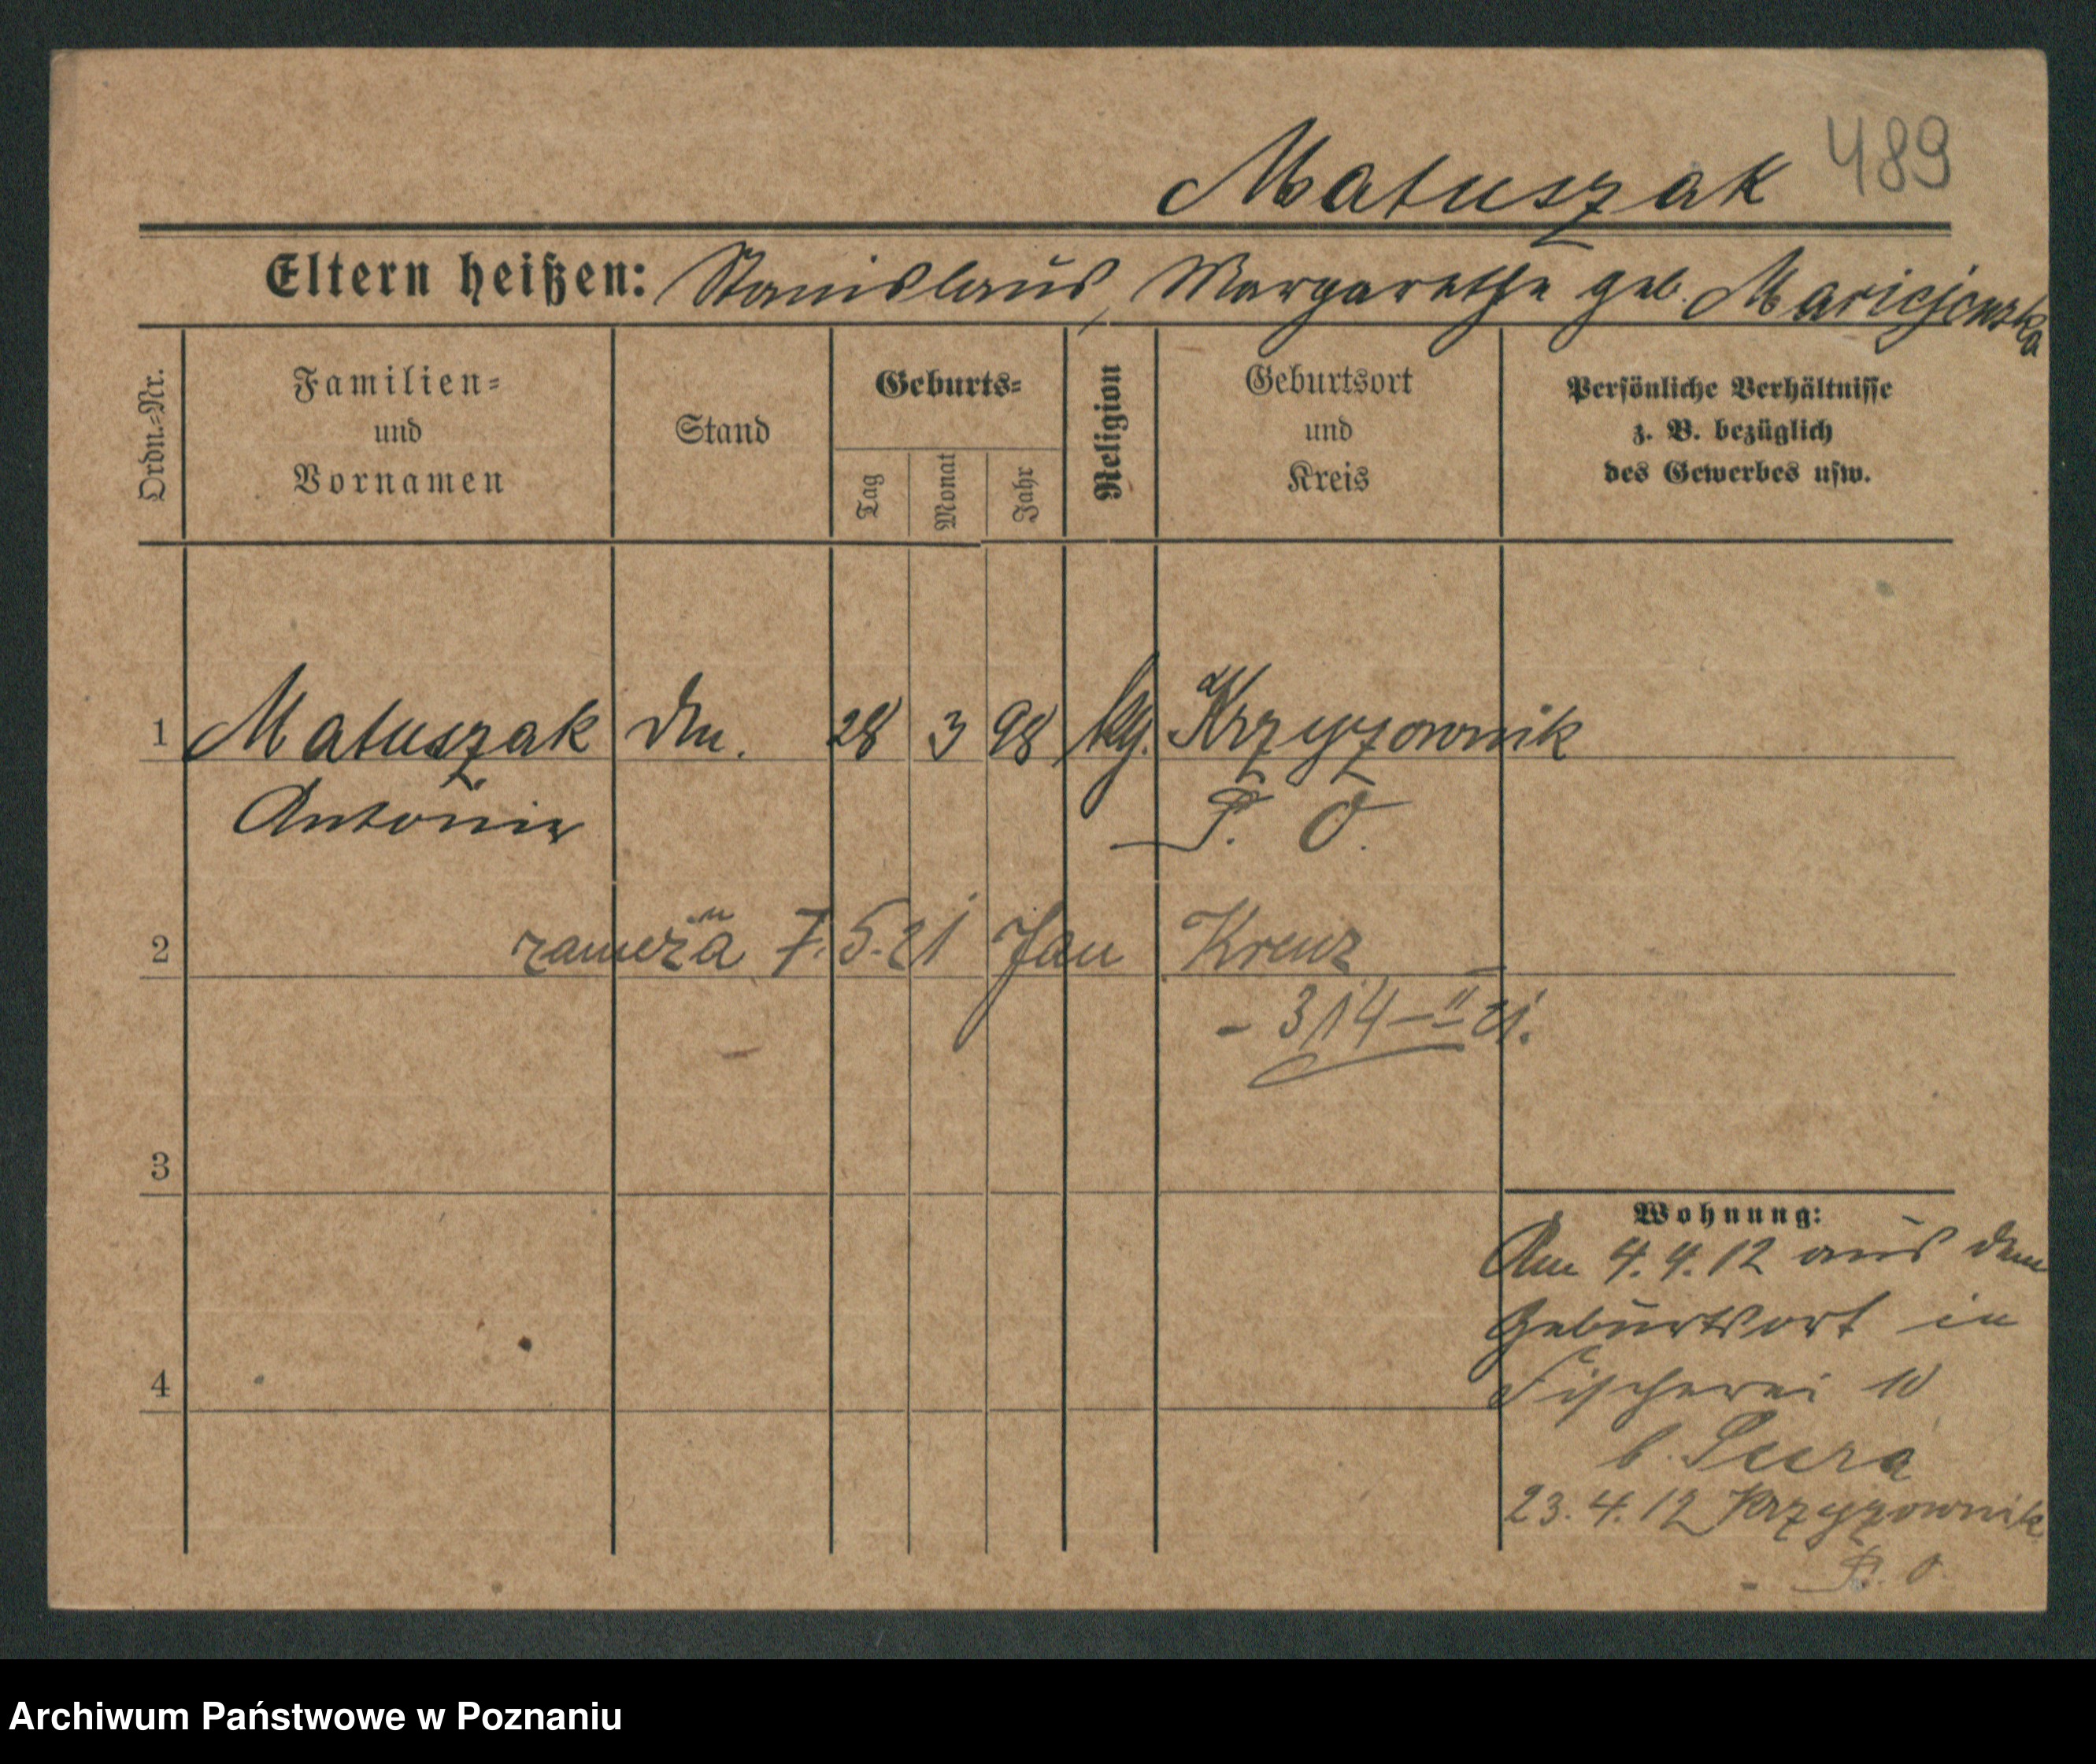 489
Matuszak
Eltern heißen: Stanislaus, Margarethe geb.
Ordn.=Nr.
Familien=
und
Vornamen
Stand
Geburts=
Tag
Monat
Jahr
Religion
Geburtsort
und
Kreis
Persönliche Verhältnisse
z. B. bezüglich
des Gewerbes usw.
1 Matuszak 28 3 98 Krzyzownik
Antonie P. O.
2 7.5.21 Jan Krenz
- 314 - II 21.
3
Wohnung:
Am 4.4.12 aus dem
Geburtsort in
4 Fischerei 10
b.
23.4.12 Krzyzownik
P. O.
Archiwum Państwowe w Poznaniu